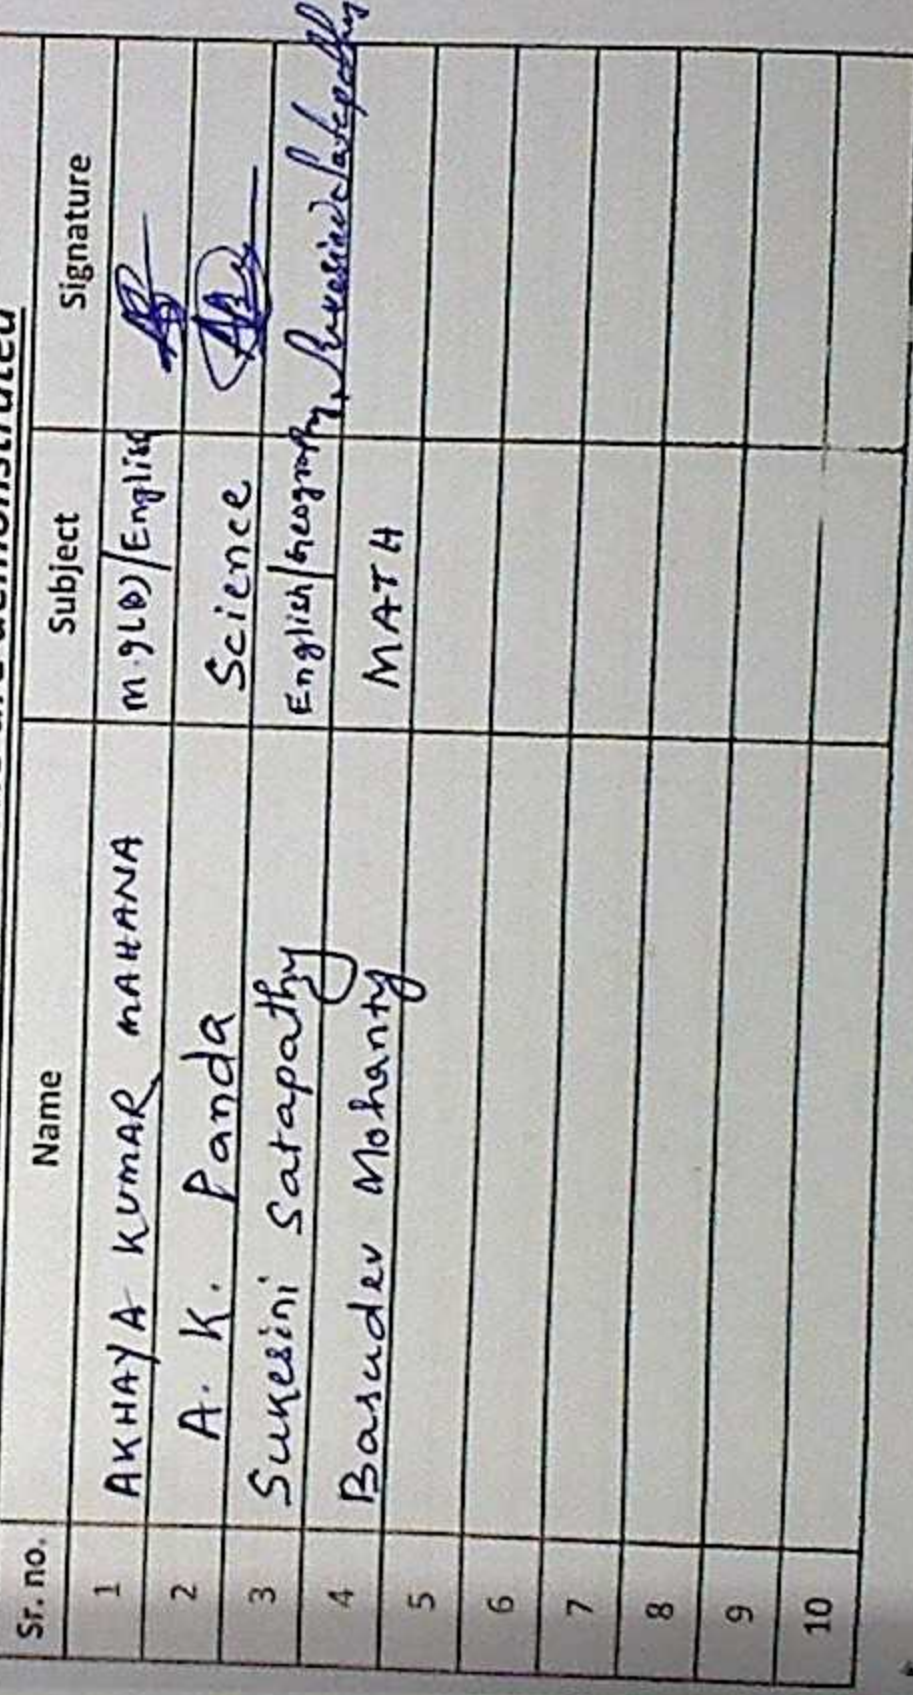 demonstrated
Sr. no. Name Subject Signature
1 AKHAYA KUMAR MAHANA /English
2 A. K. Panda Science
3 Sukesini Satapathy English/Geography Sukesini Satapathy
4 Basudev Mohanty MATH
5
6
7
8
9
10